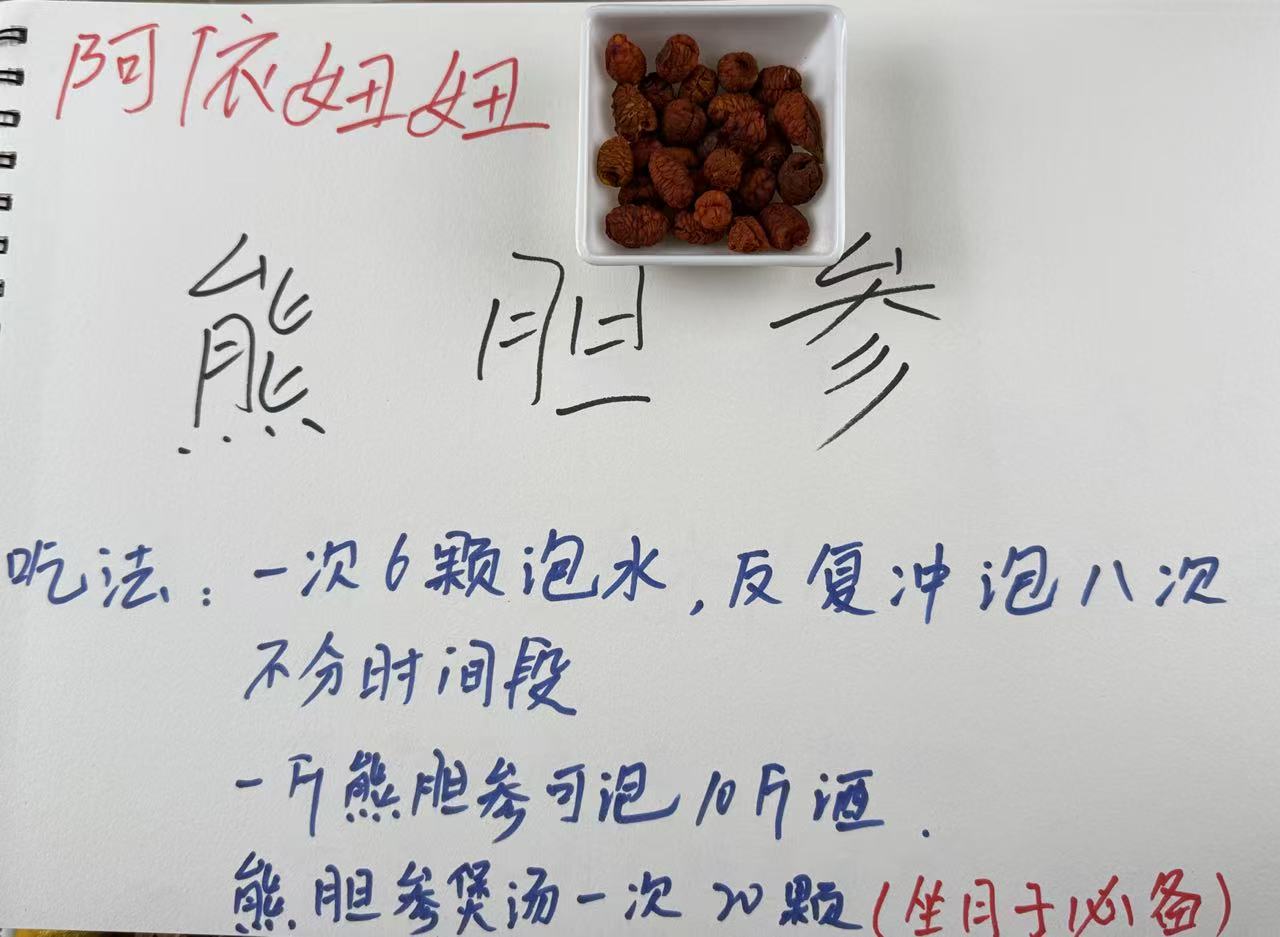 阿依妞妞
熊胆参
吃法：一次6颗泡水，反复冲泡八次
不分时间段
一斤熊胆参可泡10斤酒.
熊胆参煲汤一次20颗(坐月子必备)